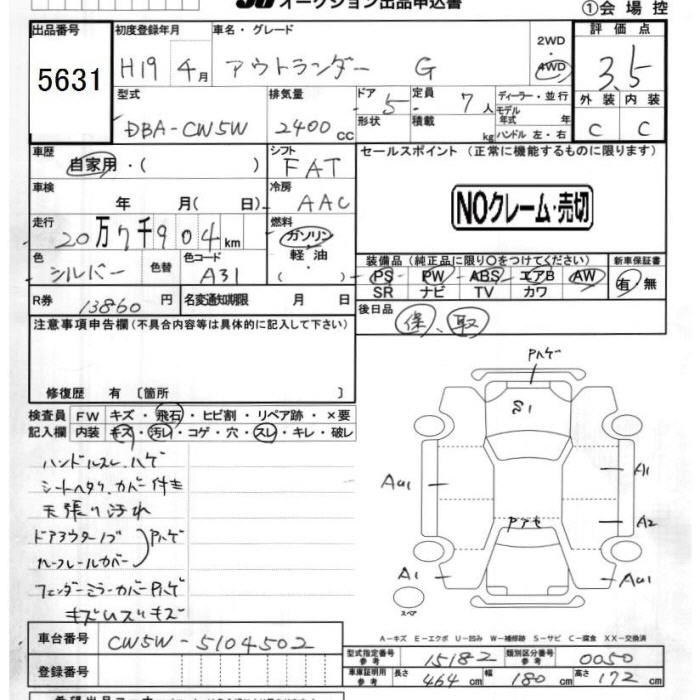 オークション出品申込書
①会場控
出品番号 5631
初度登録年月 H19 4月
車名・グレード アウトランダー G
2WD・4WD
評価点 3.5
型式 DBA-CW5W
排気量 2400 cc
ドア形状 5
定員 7人
積載 kg
ディーラー・並行
モデル年式 年
ハンドル 左・右
外装 C
内装 C
車歴 自家用・( )
シフト FAT
セールスポイント (正常に機能するものに限ります)
車検 年 月( 日)
冷房 AAC
NOクレーム・売切
走行 20万7千904km
燃料 ガソリン・軽油・( )
色 シルバー
色替
色コード A31
装備品 (純正品に限り○をつけてください)
PS PW ABS エアB AW
SR ナビ TV カワ
新車保証書 有・無
R券 13860 円
名変通知期限 月 日
後日品 保、取
注意事項申告欄(不具合内容等は具体的に記入して下さい)
修復歴 有〔箇所 〕
検査員記入欄
FW キズ・飛石・ヒビ割・リペア跡・×要
内装 キズ・汚レ・コゲ・穴・スレ・キレ・破レ
ハンドルスレ、ハゲ
シートヘタリ、カバー付き
天張り汚れ
ドアアウターノブ
ルーフレールカバー
Pハゲ
フェンダーミラーカバーPハゲ
キズ
Pハゲ
S1
AU1
A1
A2
A1
AU1
スペア
A-キズ E-エクボ U-凹み W-補修跡 S-サビ C-腐食 XX-交換済
車台番号 CW5W-5104502
登録番号
型式指定番号 参考 15182
類別区分番号 参考 0050
車庫証明用 参考 長さ 464 cm 幅 180 cm 高さ 172 cm